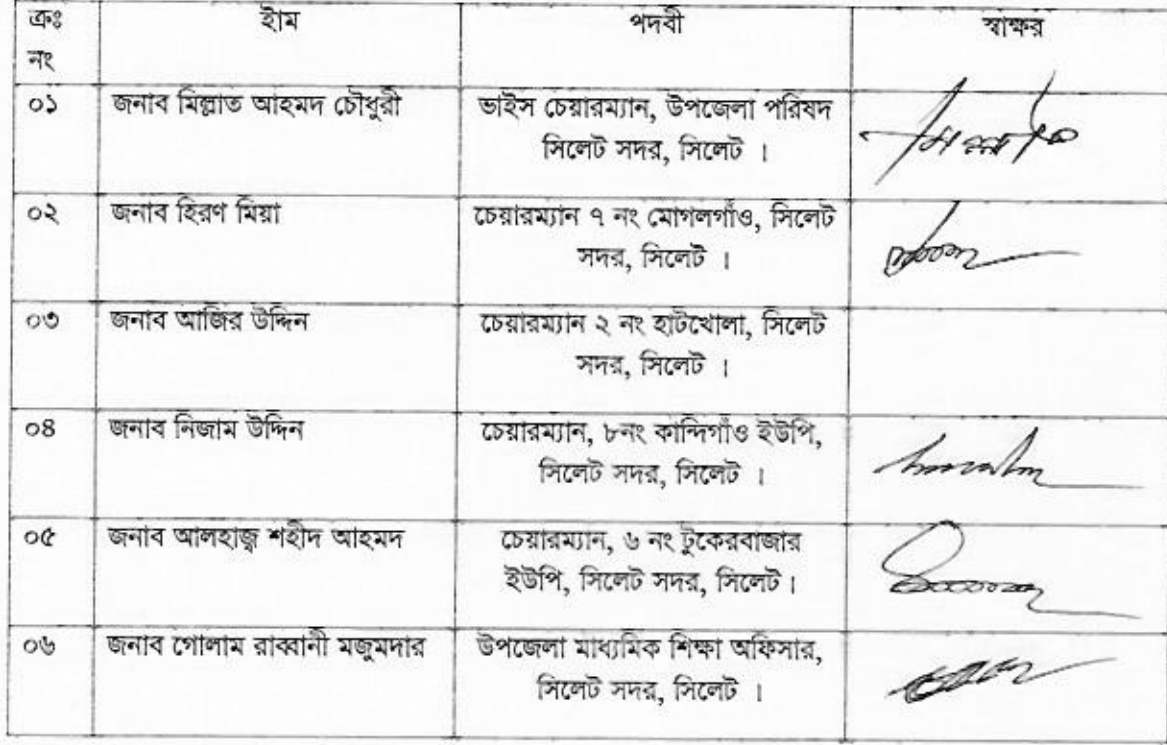 ক্রঃ নং ইাম পদবী স্বাক্ষর
০১ জনাব মিল্লাত আহমদ চৌধুরী ভাইস চেয়ারম্যান, উপজেলা পরিষদ
সিলেট সদর, সিলেট ।
০২ জনাব হিরণ মিয়া চেয়ারম্যান ৭ নং মোগলগাঁও, সিলেট
সদর, সিলেট ।
০৩ জনাব আজির উদ্দিন চেয়ারম্যান ২ নং হাটখোলা, সিলেট
সদর, সিলেট ।
০৪ জনাব নিজাম উদ্দিন চেয়ারম্যান, ৮নং কান্দিগাঁও ইউপি,
সিলেট সদর, সিলেট ।
০৫ জনাব আলহাজ্ব শহীদ আহমদ চেয়ারম্যান, ৬ নং টুকেরবাজার
ইউপি, সিলেট সদর, সিলেট।
০৬ জনাব গোলাম রাব্বানী মজুমদার উপজেলা মাধ্যমিক শিক্ষা অফিসার,
সিলেট সদর, সিলেট ।